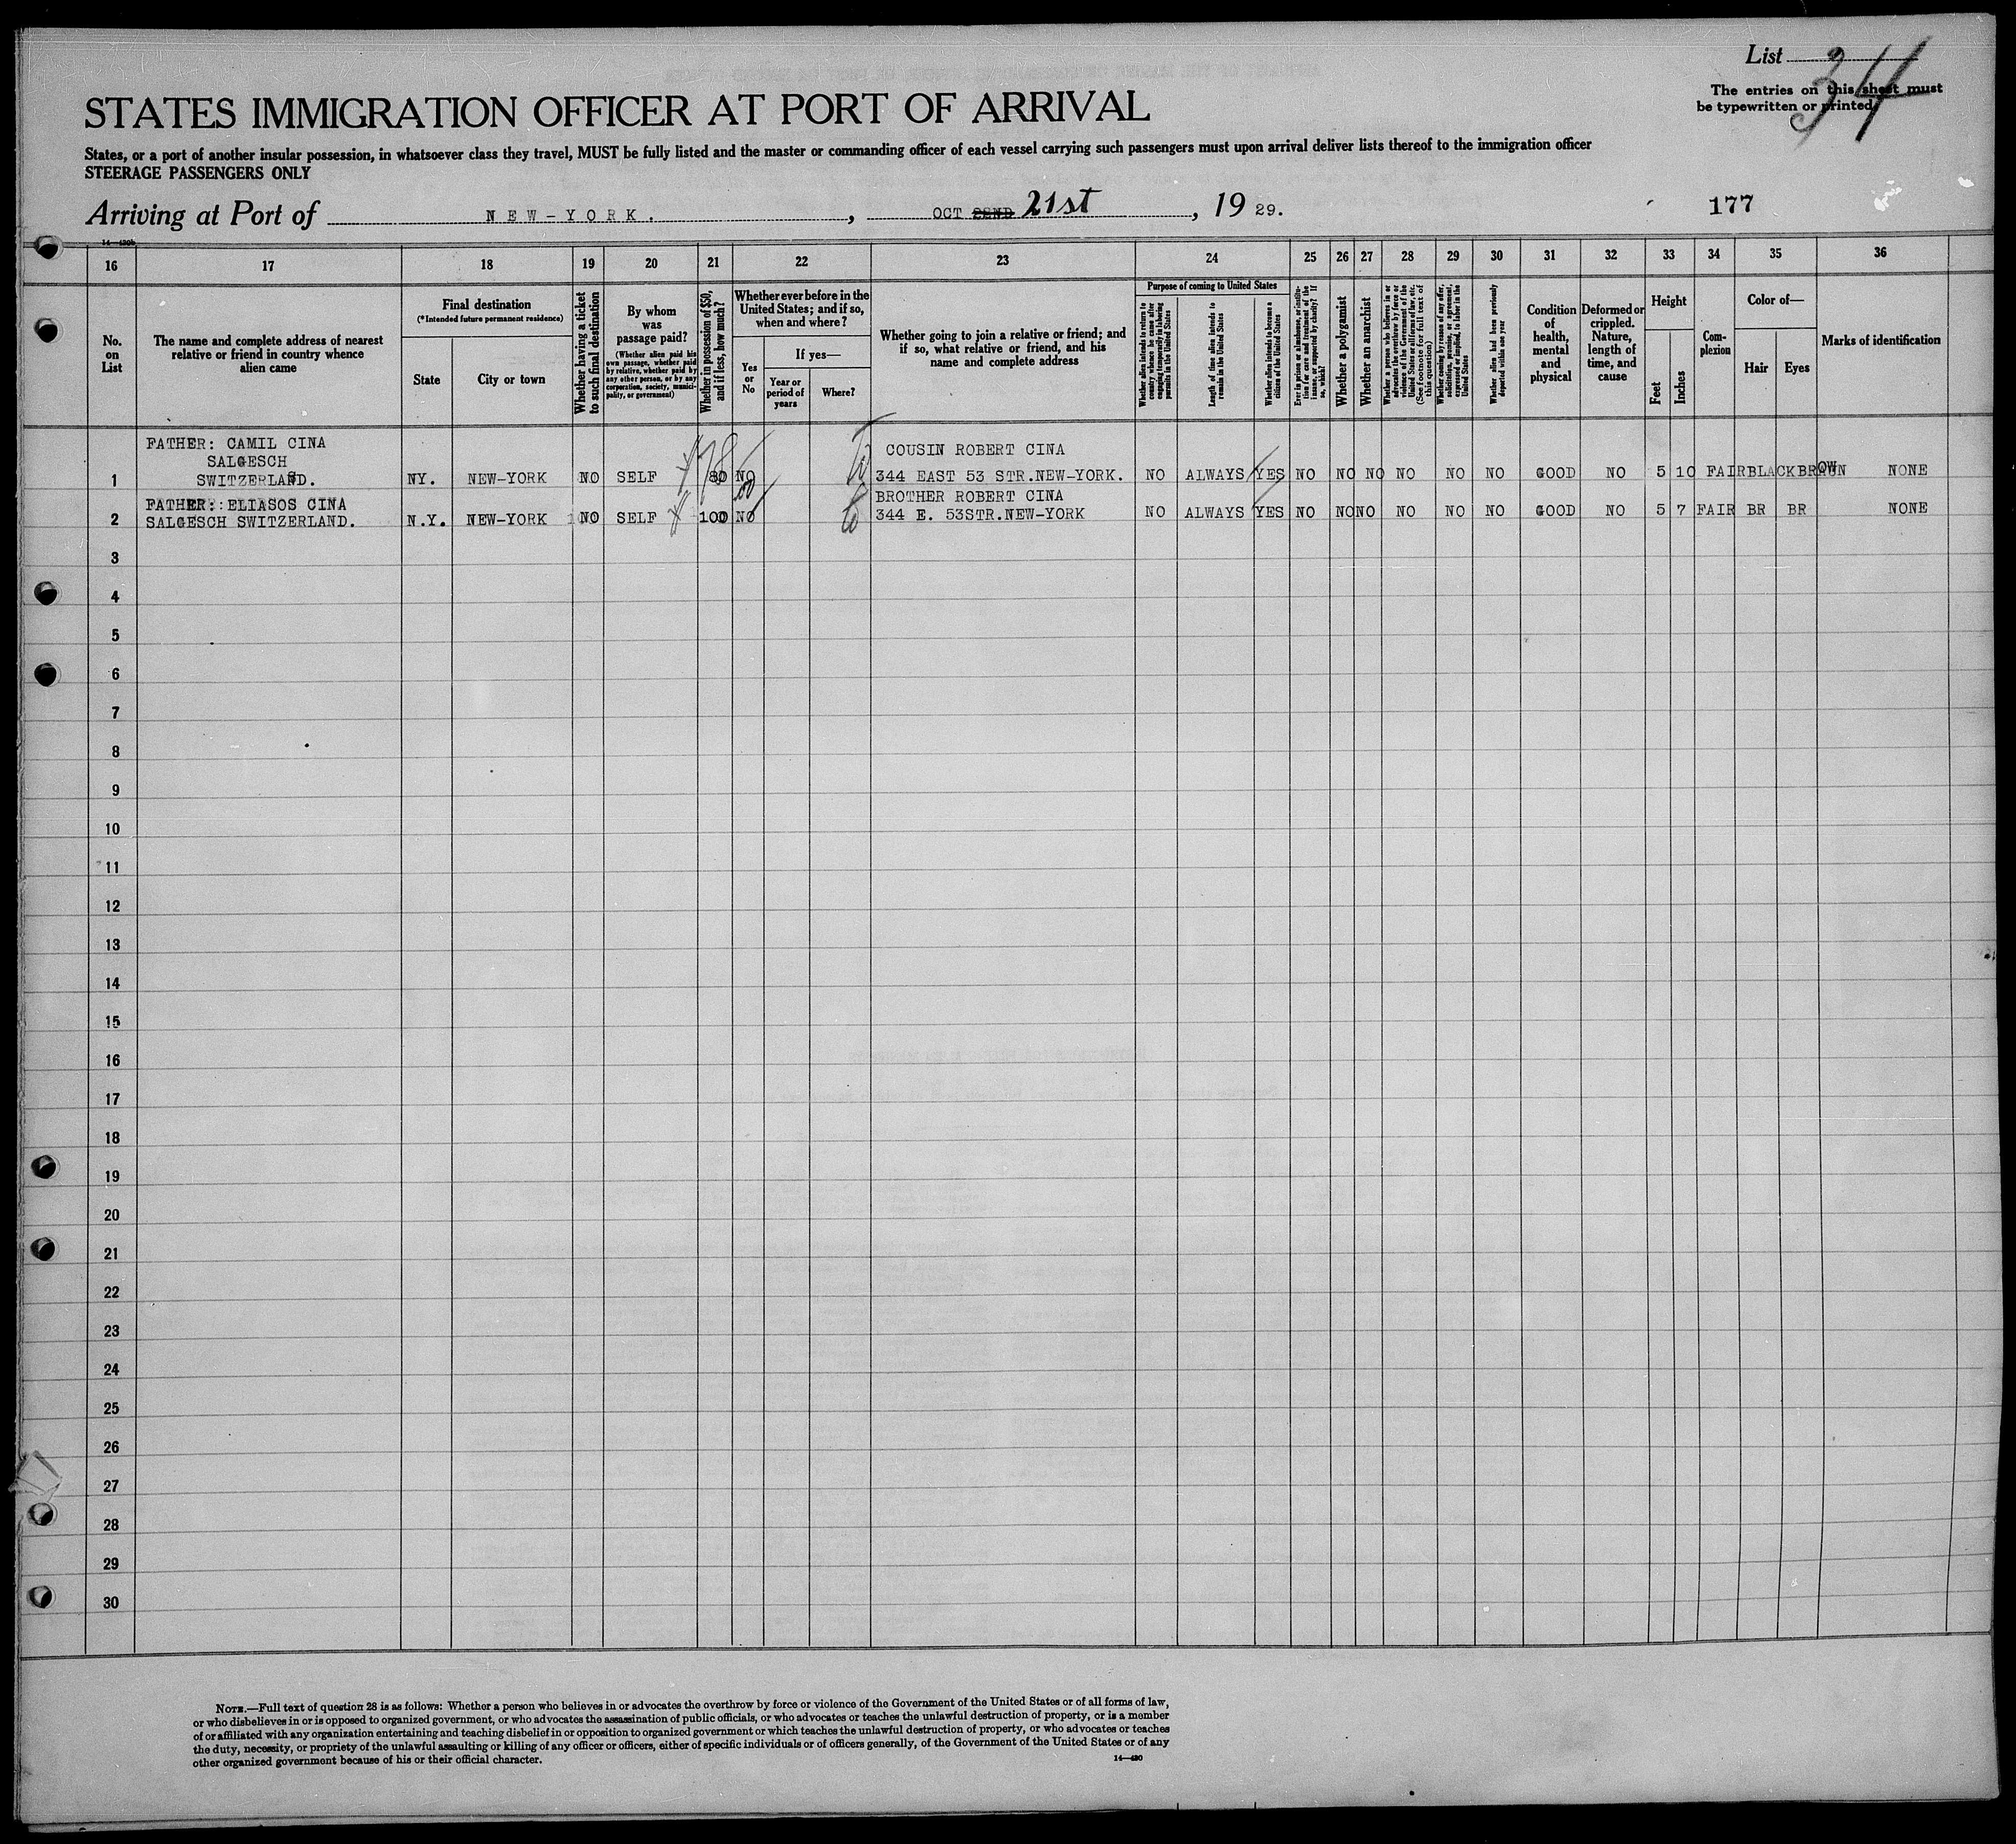 List 34
The entries on this sheet must
be typewritten or printed
STATES IMMIGRATION OFFICER AT PORT OF ARRIVAL
States, or a port of another insular possession, in whatsoever class they travel, MUST be fully listed and the master or commanding officer of each vessel carrying such passengers must upon arrival deliver lists thereof to the immigration officer
STEERAGE PASSENGERS ONLY
Arriving at Port of NEW-YORK. , OCT 22ND 21st , 19 29.
177
14—430b
16 17 18 19 20 21 22 23 24 25 26 27 28 29 30 31 32 33 34 35 36
No. on List
The name and complete address of nearest relative or friend in country whence alien came
Final destination
(*Intended future permanent residence)
State
City or town
Whether having a ticket to such final destination
By whom was passage paid?
(Whether alien paid his own passage, whether paid by relative, whether paid by any other person, or by any corporation, society, municipality, or government)
Whether in possession of $50, and if less, how much?
Whether ever before in the United States; and if so, when and where?
Yes or No
If yes—
Year or period of years
Where?
Whether going to join a relative or friend; and if so, what relative or friend, and his name and complete address
Purpose of coming to United States
Whether alien intends to return to country whence he came after engaging temporarily in laboring pursuits in the United States
Length of time alien intends to remain in the United States
Whether alien intends to become a citizen of the United States
Ever in prison or almshouse, or institution for care and treatment of the insane, or supported by charity? If so, which?
Whether a polygamist
Whether an anarchist
Whether a person who believes in or advocates the overthrow by force or violence of the Government of the United States or all forms of law, etc. (See footnote for full text of this question)
Whether coming by reason of any offer, solicitation, promise, or agreement, expressed or implied, to labor in the United States
Whether alien had been previously deported within one year
Condition of health, mental and physical
Deformed or crippled. Nature, length of time, and cause
Height
Feet
Inches
Complexion
Color of—
Hair
Eyes
Marks of identification
FATHER: CAMIL CINA
SALGESCH
SWITZERLAND.
1 NY. NEW-YORK NO SELF 80 NO
COUSIN ROBERT CINA
344 EAST 53 STR.NEW-YORK. NO ALWAYS YES NO NO NO NO NO NO GOOD NO 5 10 FAIR BLACK BRAUN OW NONE
FATHER: ELIASOS CINA
BROTHER ROBERT CINA
2 SALGESCH SWITZERLAND. N.Y. NEW-YORK NO SELF 100 NO 344 E. 53STR.NEW-YORK NO ALWAYS YES NO NO NO NO NO NO GOOD NO 5 7 FAIR BR BR NONE
3
4
5
6
7
8
9
10
11
12
13
14
15
16
17
18
19
20
21
22
23
24
25
26
27
28
29
30
NOTE.—Full text of question 28 is as follows: Whether a person who believes in or advocates the overthrow by force or violence of the Government of the United States or of all forms of law,
or who disbelieves in or is opposed to organized government, or who advocates the assassination of public officials, or who advocates or teaches the unlawful destruction of property, or is a member
of or affiliated with any organization entertaining and teaching disbelief in or opposition to organized government or which teaches the unlawful destruction of property, or who advocates or teaches
the duty, necessity, or propriety of the unlawful assaulting or killing of any officer or officers, either of specific individuals or of officers generally, of the Government of the United States or of any
other organized government because of his or their official character.
14—430